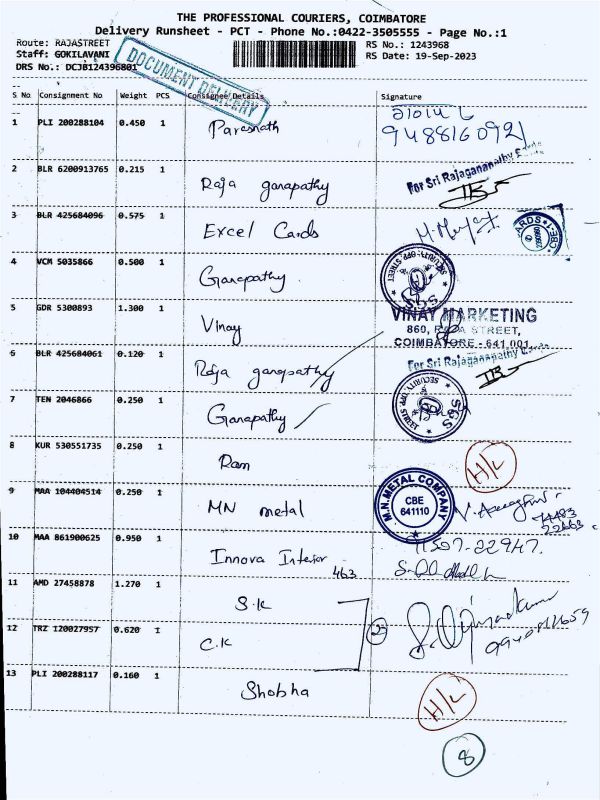 THE PROFESSIONAL COURIERS, COIMBATORE
Delivery Runsheet - PCT - Phone No.:0422-3505555 - Page No.:1
Route: RAJASTREET
RS No.: 1243968
Staff: GOKILAVANI
RS Date: 19-Sep-2023
DRS No.: DCJB124396801
DOCUMENT DELIVERY
S No Consignment No Weight PCS Consignee Details Signature
1 PLI 200288104 0.450 1 Paresnath
9488160921
2 BLR 6200913765 0.215 1 Raja ganapathy
For Sri Rajaganapathy
3 BLR 425684096 0.575 1 Excel Cards
4 VCM 5035866 0.500 1 Ganapathy
SGS SECURITY, OPP STREET
5 GDR 5300893 1.300 1 Vinay
VINAY MARKETING
860, RAJA STREET,
COIMBATORE - 641 001.
6 BLR 425684061 0.120 1 Raja ganapathy
For Sri Rajaganapathy
7 TEN 2046866 0.250 1 Ganapathy
SGS SECURITY
8 KUR 530551735 0.250 1 Ram
H/L
9 MAA 104404514 0.250 1 MN metal
M.N.METAL COMPANY
CBE
641110
10 MAA 861900625 0.950 1 Innova Interior
463
11 AMD 27458878 1.270 1 S.K
12 TRZ 120027957 0.620 1 C.K
2
13 PLI 200288117 0.160 1 Shobha
H/L
8